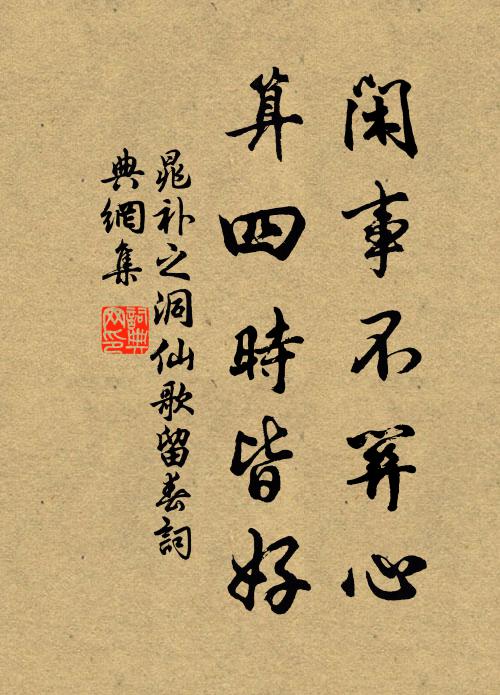 閑事不關心
算四時皆好
晁补之洞仙歌留春詞
典網集
詞典
网印